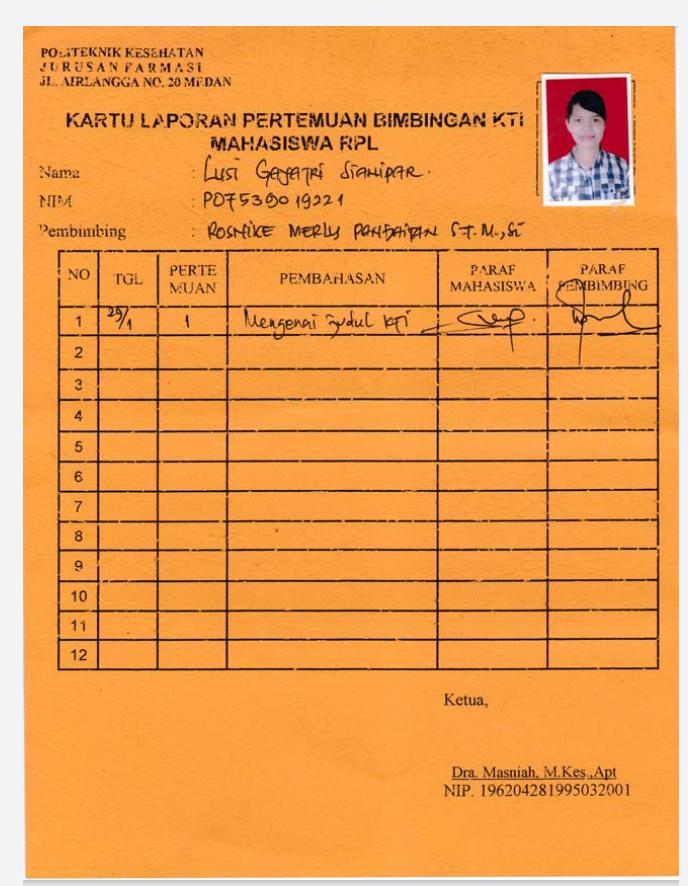 POLITEKNIK KESEHATAN
JURUSAN FARMASI
JL. AIRLANGGA NO. 20 MEDAN
KARTU LAPORAN PERTEMUAN BIMBINGAN KTI
MAHASISWA RPL
Nama : Lusi Gajatri Sianipar.
NIM : P07539019221
Pembimbing : Rosnike Merly Panjaitan ST. M.,Si
NO TGL PERTE MUAN PEMBAHASAN PARAF MAHASISWA PARAF PEMBIMBING
1 29/1 1 Mengenai Judul KTI
2
3
4
5
6
7
8
9
10
11
12
Ketua,
Dra. Masniah, M.Kes.,Apt
NIP. 196204281995032001